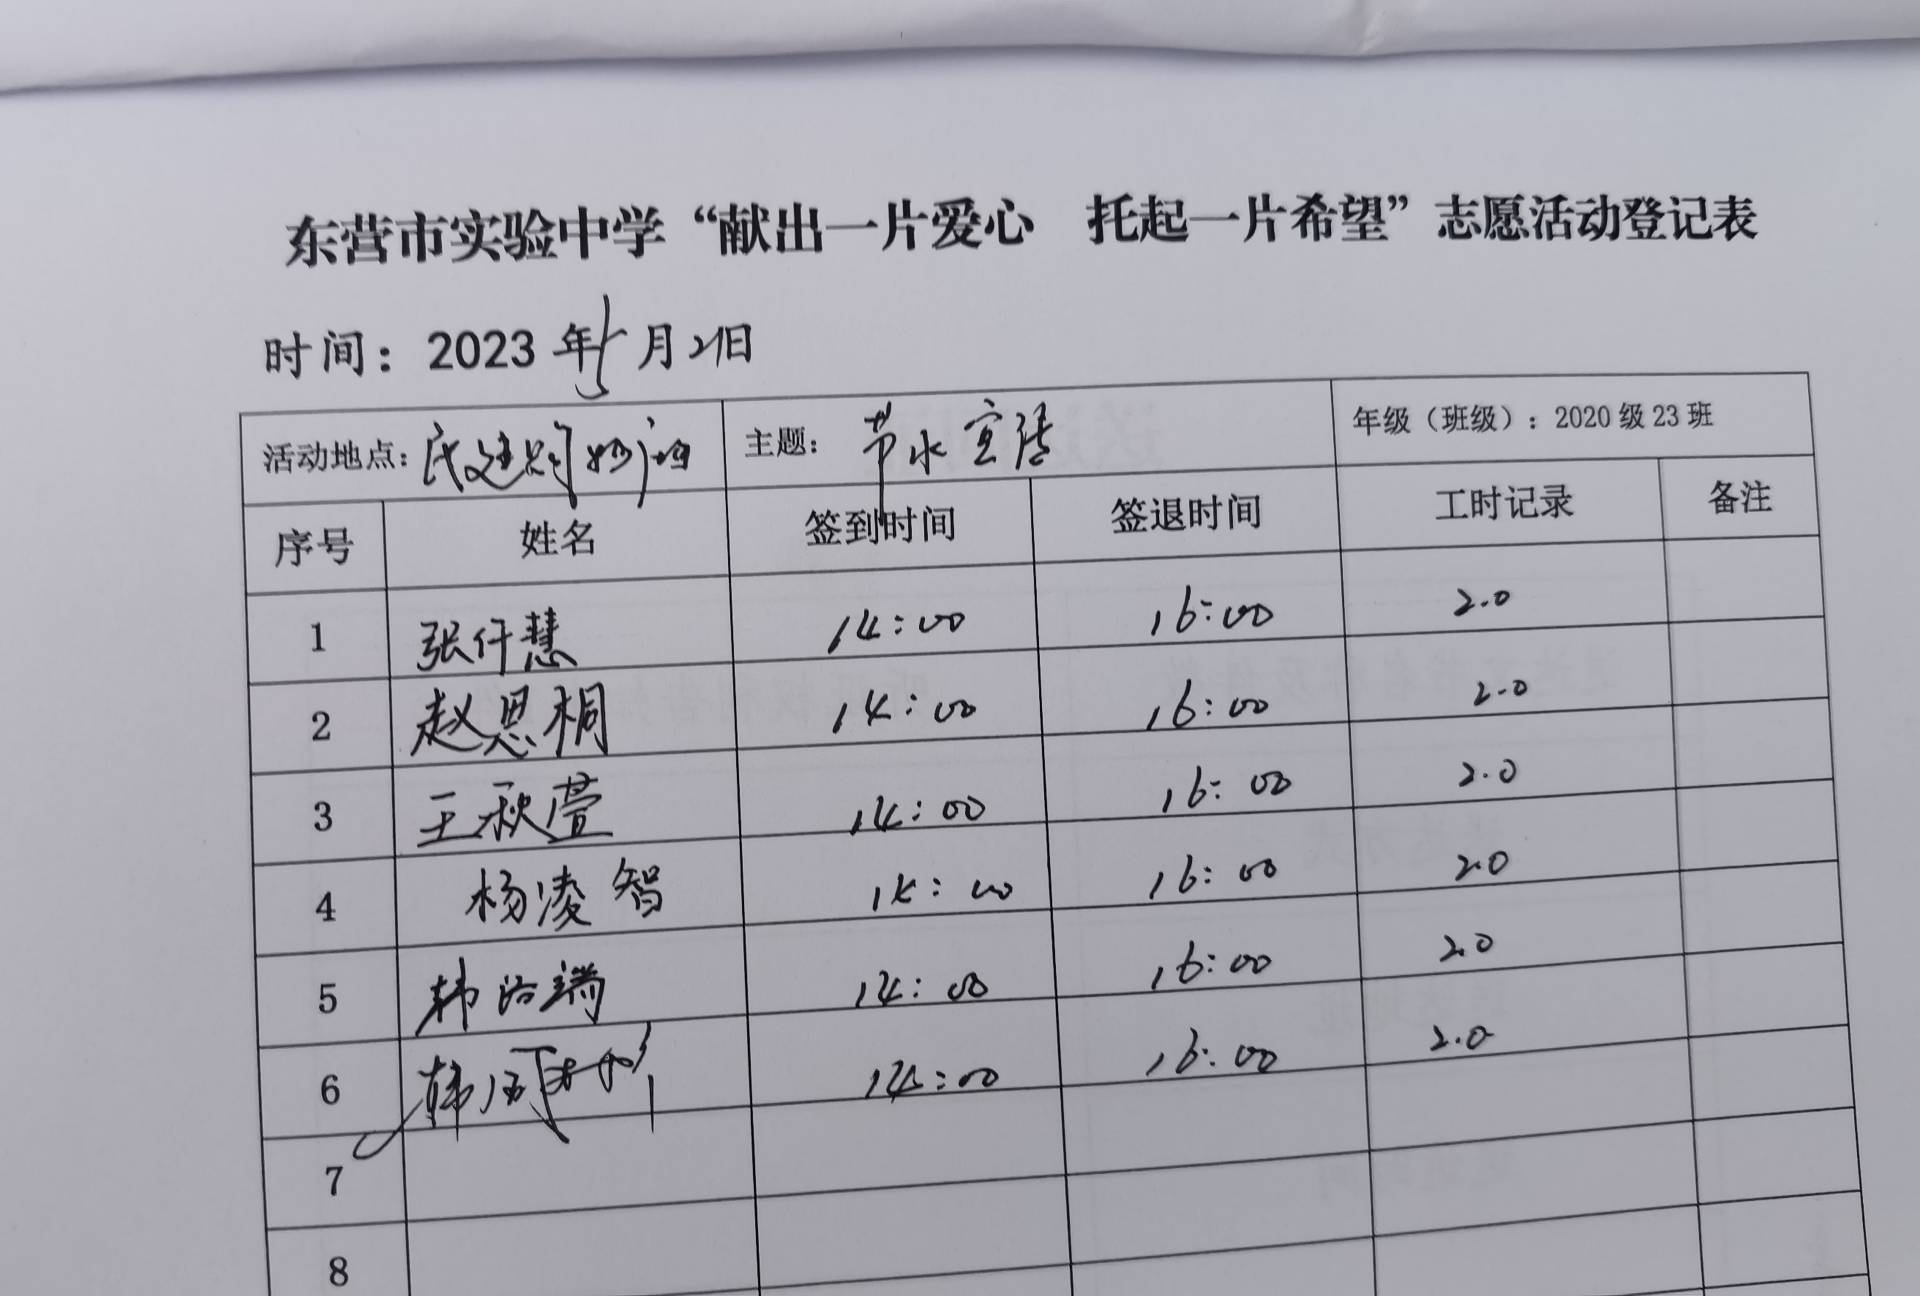 东营市实验中学“献出一片爱心 托起一片希望”志愿活动登记表
时间：2023年5月21日
活动地点： 主题：节水宣传 年级（班级）：2020级23班
序号 姓名 签到时间 签退时间 工时记录 备注
1 张仟慧 14:00 16:00 2.0
2 赵思桐 14:00 16:00 2.0
3 王秋萱 14:00 16:00 2.0
4 杨凌智 14:00 16:00 2.0
5 韩 14:00 16:00 2.0
6 韩 14:00 16:00 2.0
7
8